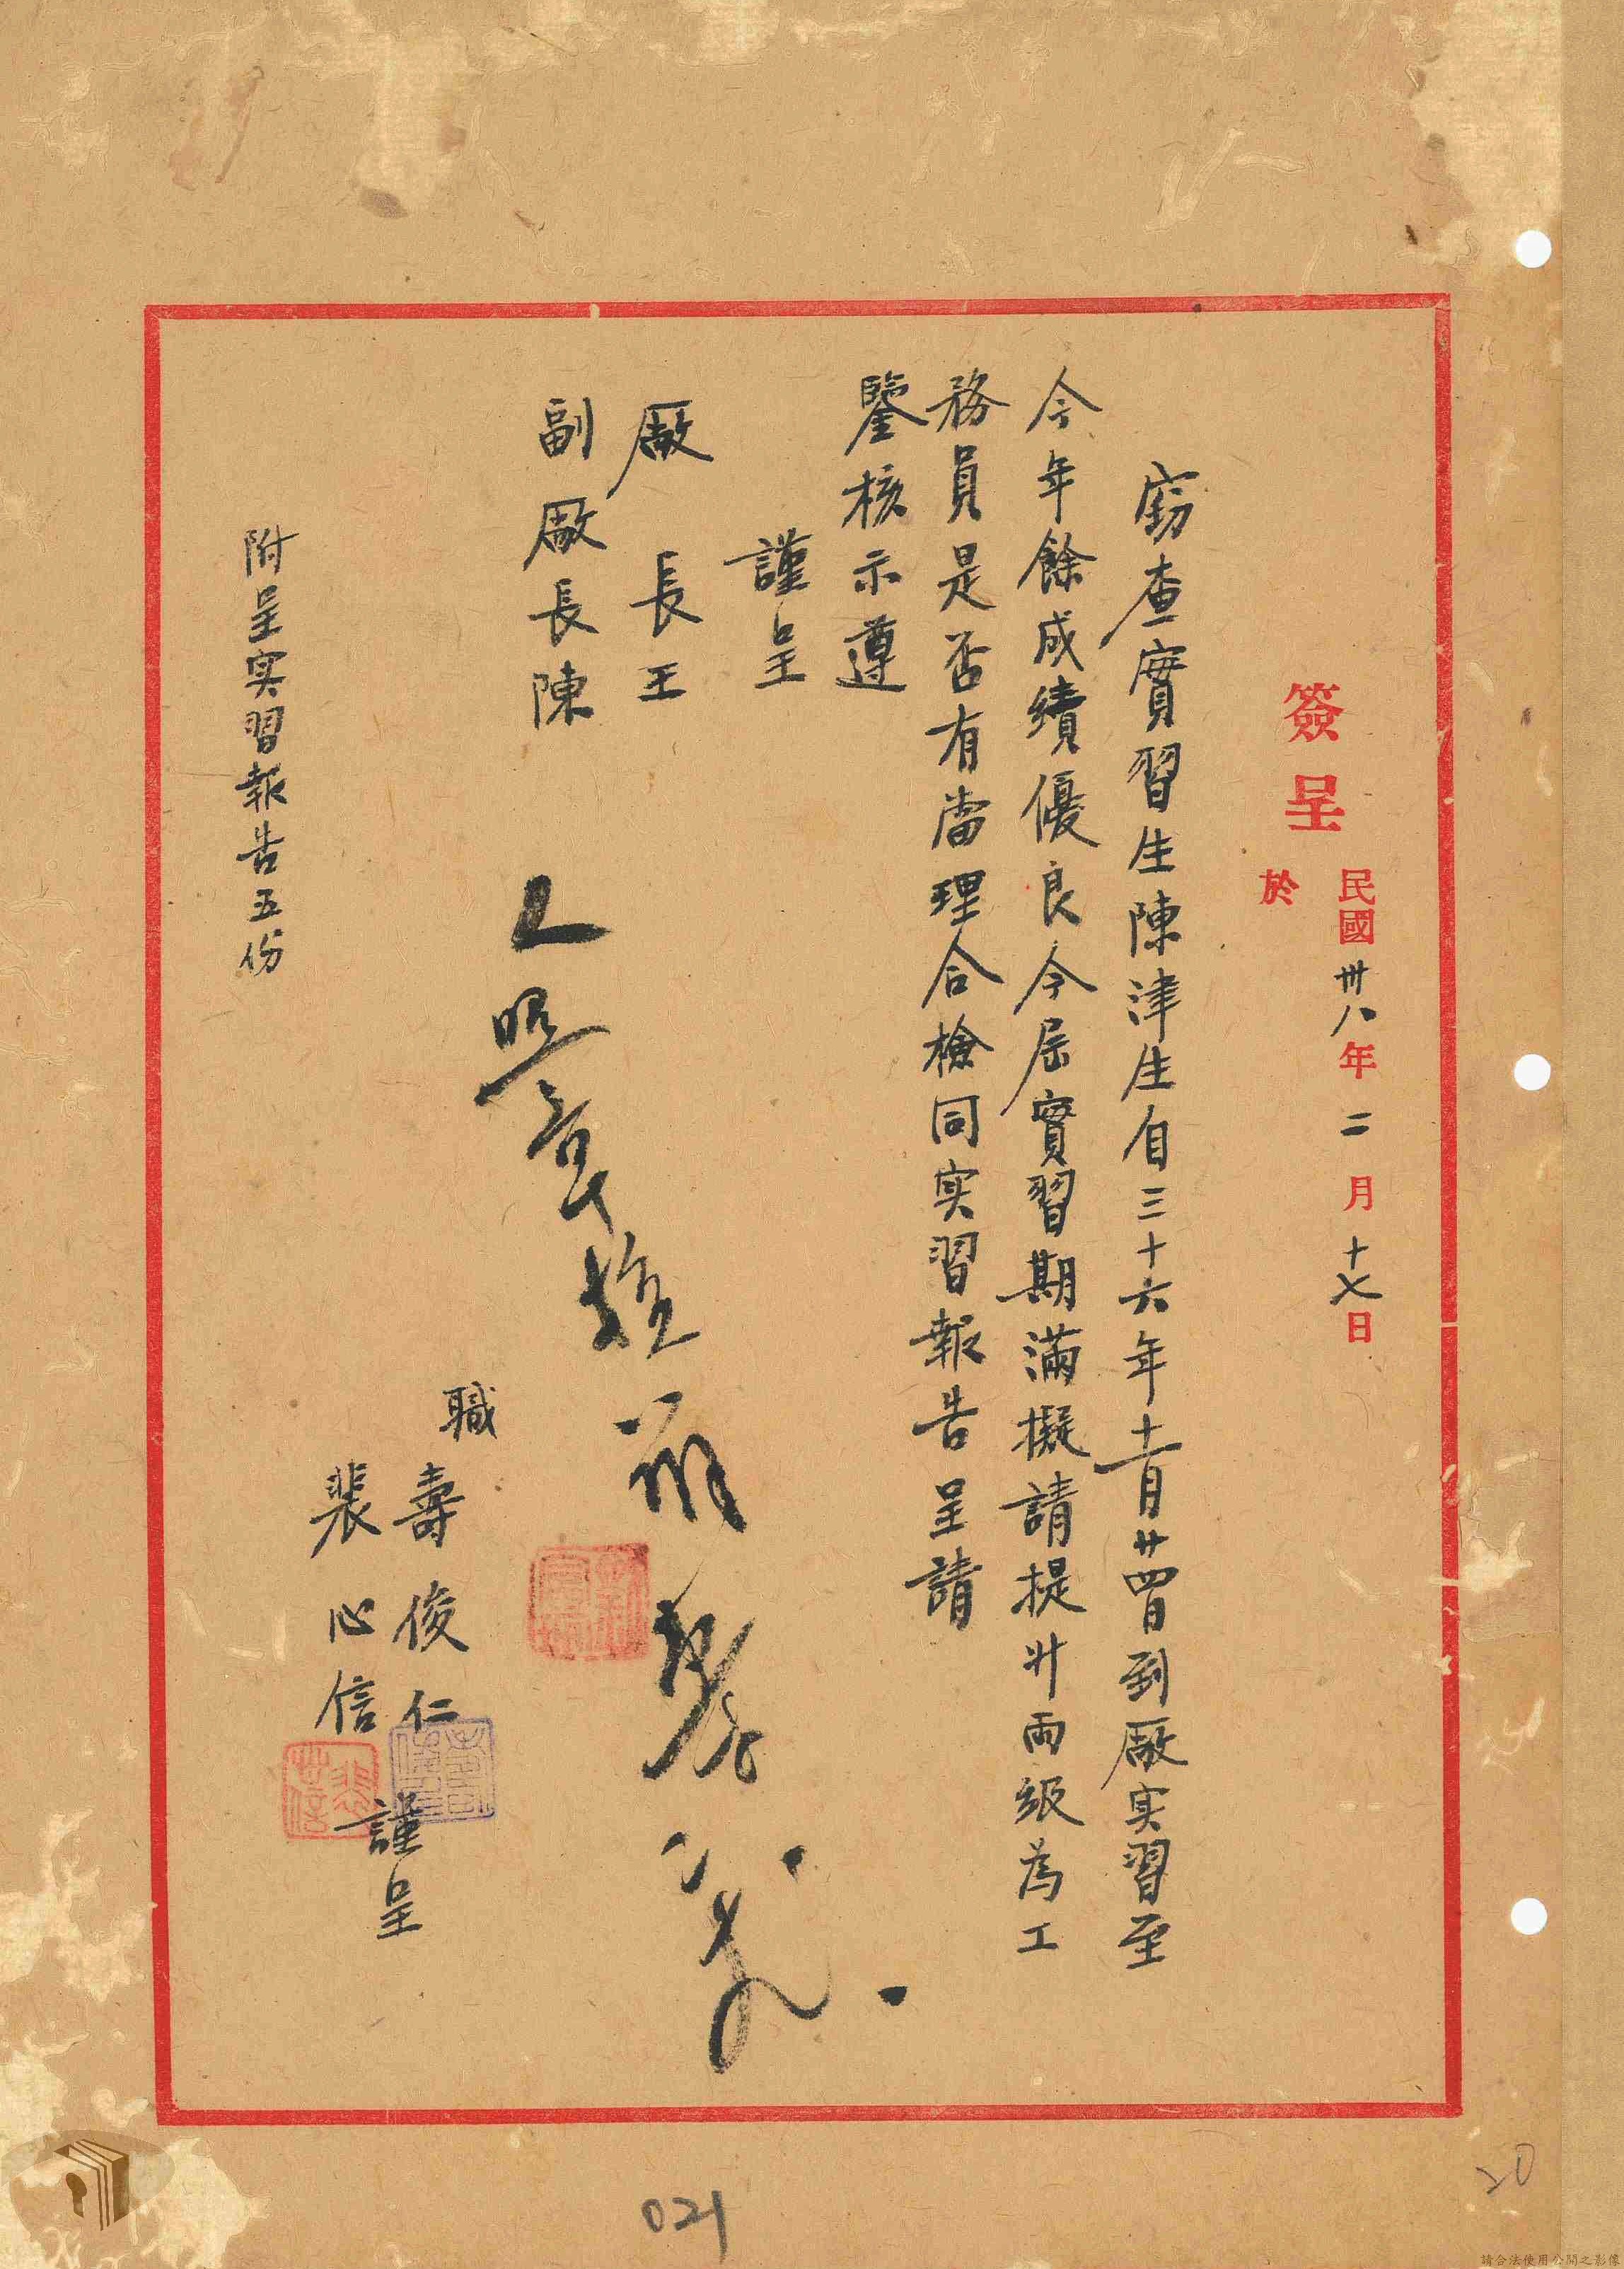 簽呈
民國卅八年二月十七日
於
竊查實習生陳津生自三十六年十一月廿四日到廠实習至
今年餘成績優良今屆實習期滿擬請提升兩級為工
務員是否有當理合檢同实習報告呈請
鑒核示遵
謹呈
廠長王
副廠長陳
職
壽俊仁
裴心信
謹呈
附呈实習報告五份
021
20
請合法使用公開之影像